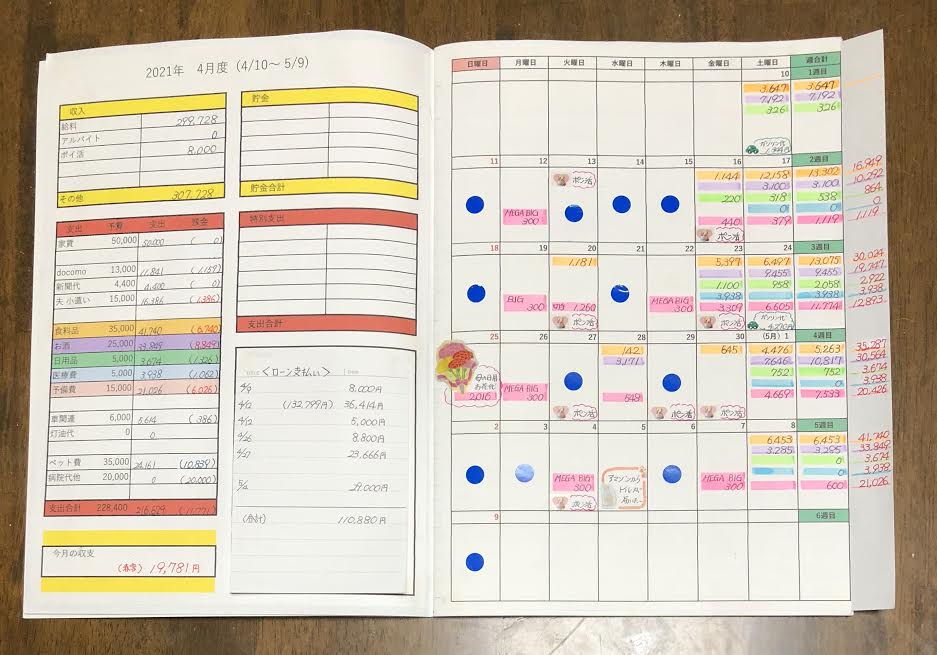 2021年 4月度 (4/10～5/9)
収入
給料 299,728
アルバイト 0
ポイ活 8,000
その他 307,728
支出 予算 支出 残金
家賃 50,000 50,000 ( 0)
docomo 13,000 11,841 (1,159)
新聞代 4,400 4,400 ( 0)
夫 小遣い 15,000 16,386 (1,386)
食料品 35,000 41,740 (6,740)
お酒 25,000 33,849 (8,849)
日用品 5,000 3,674 (1,326)
医療費 5,000 3,938 (1,062)
予備費 15,000 21,026 (6,026)
車関連 6,000 5,614 ( 386)
灯油代 0 0
ペット費 35,000 24,161 (10,839)
病院代他 20,000 0 (20,000)
支出合計 228,400 216,629
今月の収支
19,781円
貯金
貯金合計
特別支出
支出合計
<ローン支払い>
4/9 8,000円
4/12 (132,799円) 36,414円
4/12 5,000円
4/26 8,800円
4/27 23,666円
5/4 29,000円
(合計) 110,880円
日曜日 月曜日 火曜日 水曜日 木曜日 金曜日 土曜日 週合計
10 1週目
3,647 3,647
7,192 7,192
326 326
ガソリン代
11 12 13 14 15 16 17 2週目
ポン活
1,144 12,158 13,302 16,949
3,100 3,100 10,292
220 518 538 864
0 0 0
MEGA BIG
300
440 379 1,119 1,119
ポン活
18 19 20 21 22 23 24 3週目
1,181 5,397 6,497 13,075 30,024
9,455 9,455 19,747
1,100 958 2,058 2,922
3,938 3,938 3,938
BIG
300
1,260
MEGA BIG
300
3,309 6,605 11,774 12,893
ポン活 ポン活 ガソリン代
4,270円
25 26 27 28 29 30 (5月) 1 4週目
142 645 4,476 5,263 35,287
3,171 7,646 10,817 30,564
752 752 3,674
0 0 3,938
母の日用
お花代
2,016
MEGA BIG
300
548 4,669 7,533 20,426
ポン活 ポン活 ポン活
2 3 4 5 6 7 8 5週目
6,453 6,453 41,740
3,285 3,285 33,849
3,674
0 0 3,938
MEGA BIG
300
アマゾンから
MEGA BIG
300
600 21,026
ポン活
9 6週目